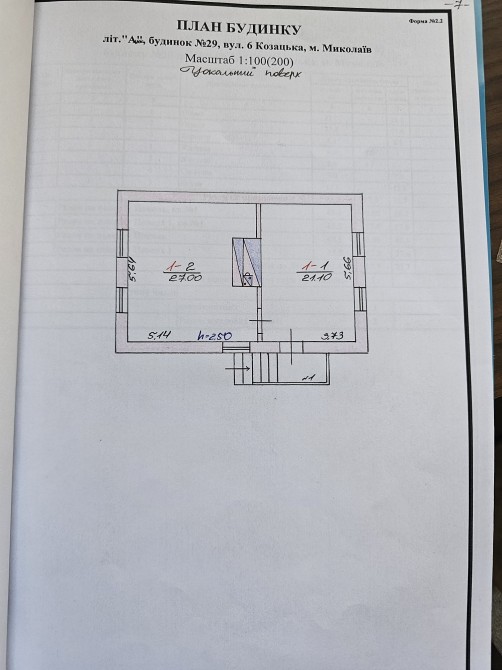 -7-
Форма №2.2
ПЛАН БУДИНКУ
літ."А", будинок №29, вул. 6 Козацька, м. Миколаїв
Масштаб 1:100(200)
"Цокольний" поверх
1-2
27.00
1-1
21.10
5.64
5.66
5.14
h=2.50
3.73